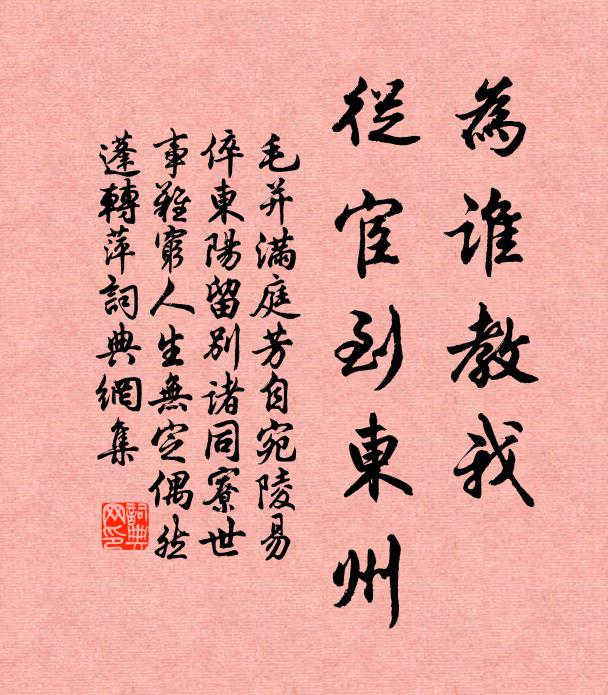 為誰教我
從宦到東州
毛并滿庭芳自宛陵易
倅東陽留別諸同寮世
事難窮人生無定偶然
蓬轉萍詞典網集
詞典
網印